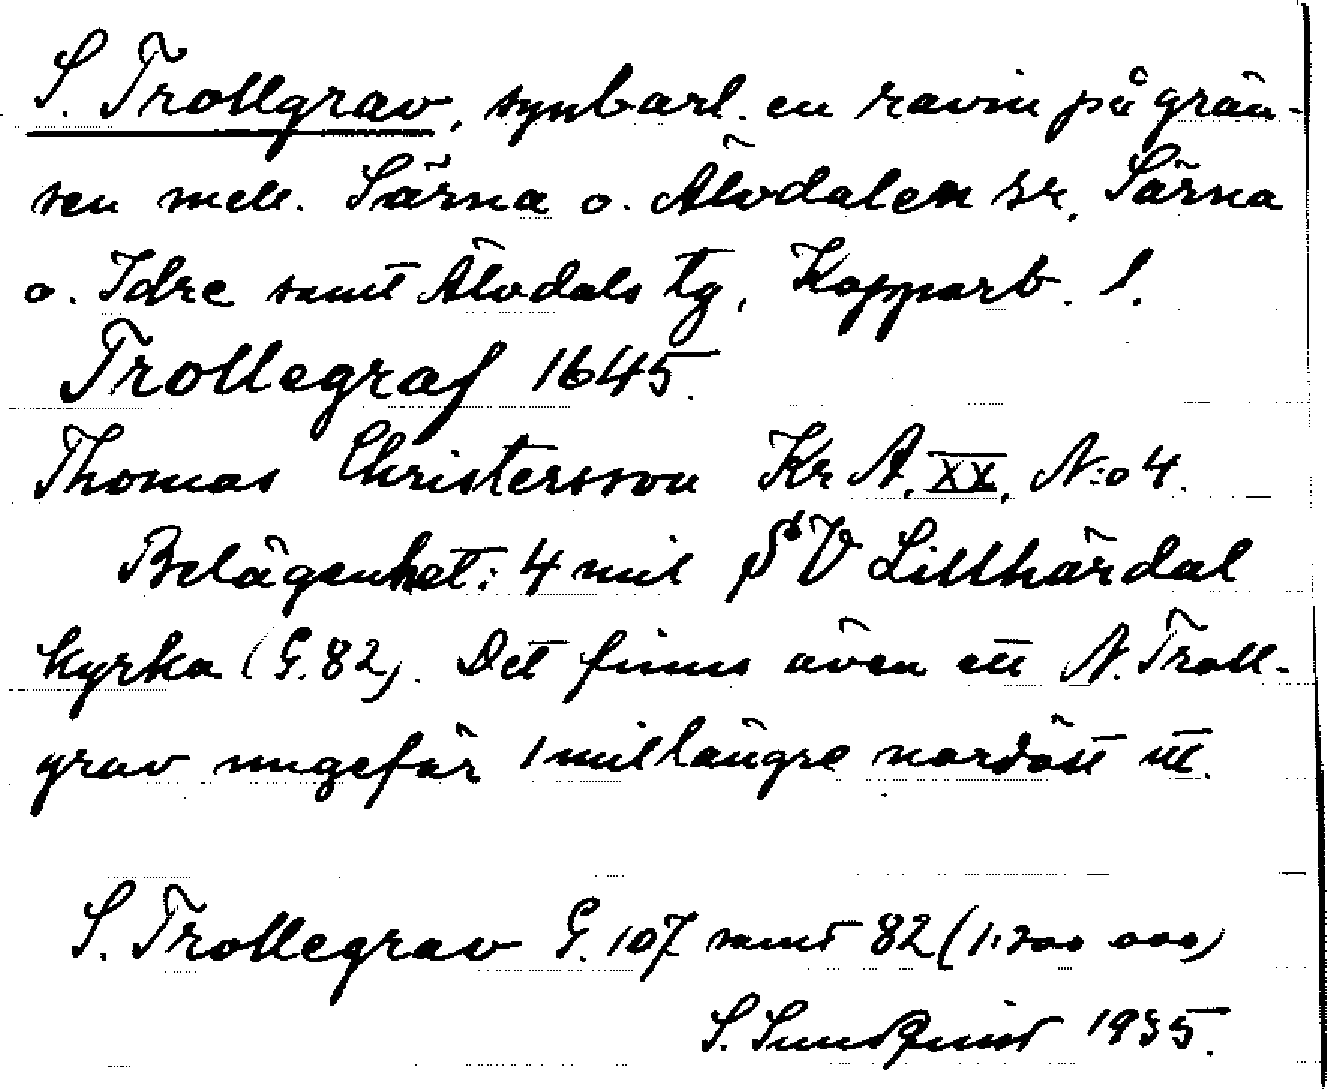 S. Trollgrav, synbarl. en ravin på grän-
sen mell. Särna o. Älvdalen sr, Särna
o. Idre samt Älvdals tg, Kopparb. l.
Trollegraf 1645.
Thomas Christersson Kr A. XX, N:o 4.
Belägenhet: 4 mil SV Lillhärdal
kyrka (G. 82). Det finns även ett N. Troll-
grav ungefär 1 mil längre nordöst ut.
S. Trollegrav G. 107 samt 82 (1:200 000)
S. Sundquist 1935.